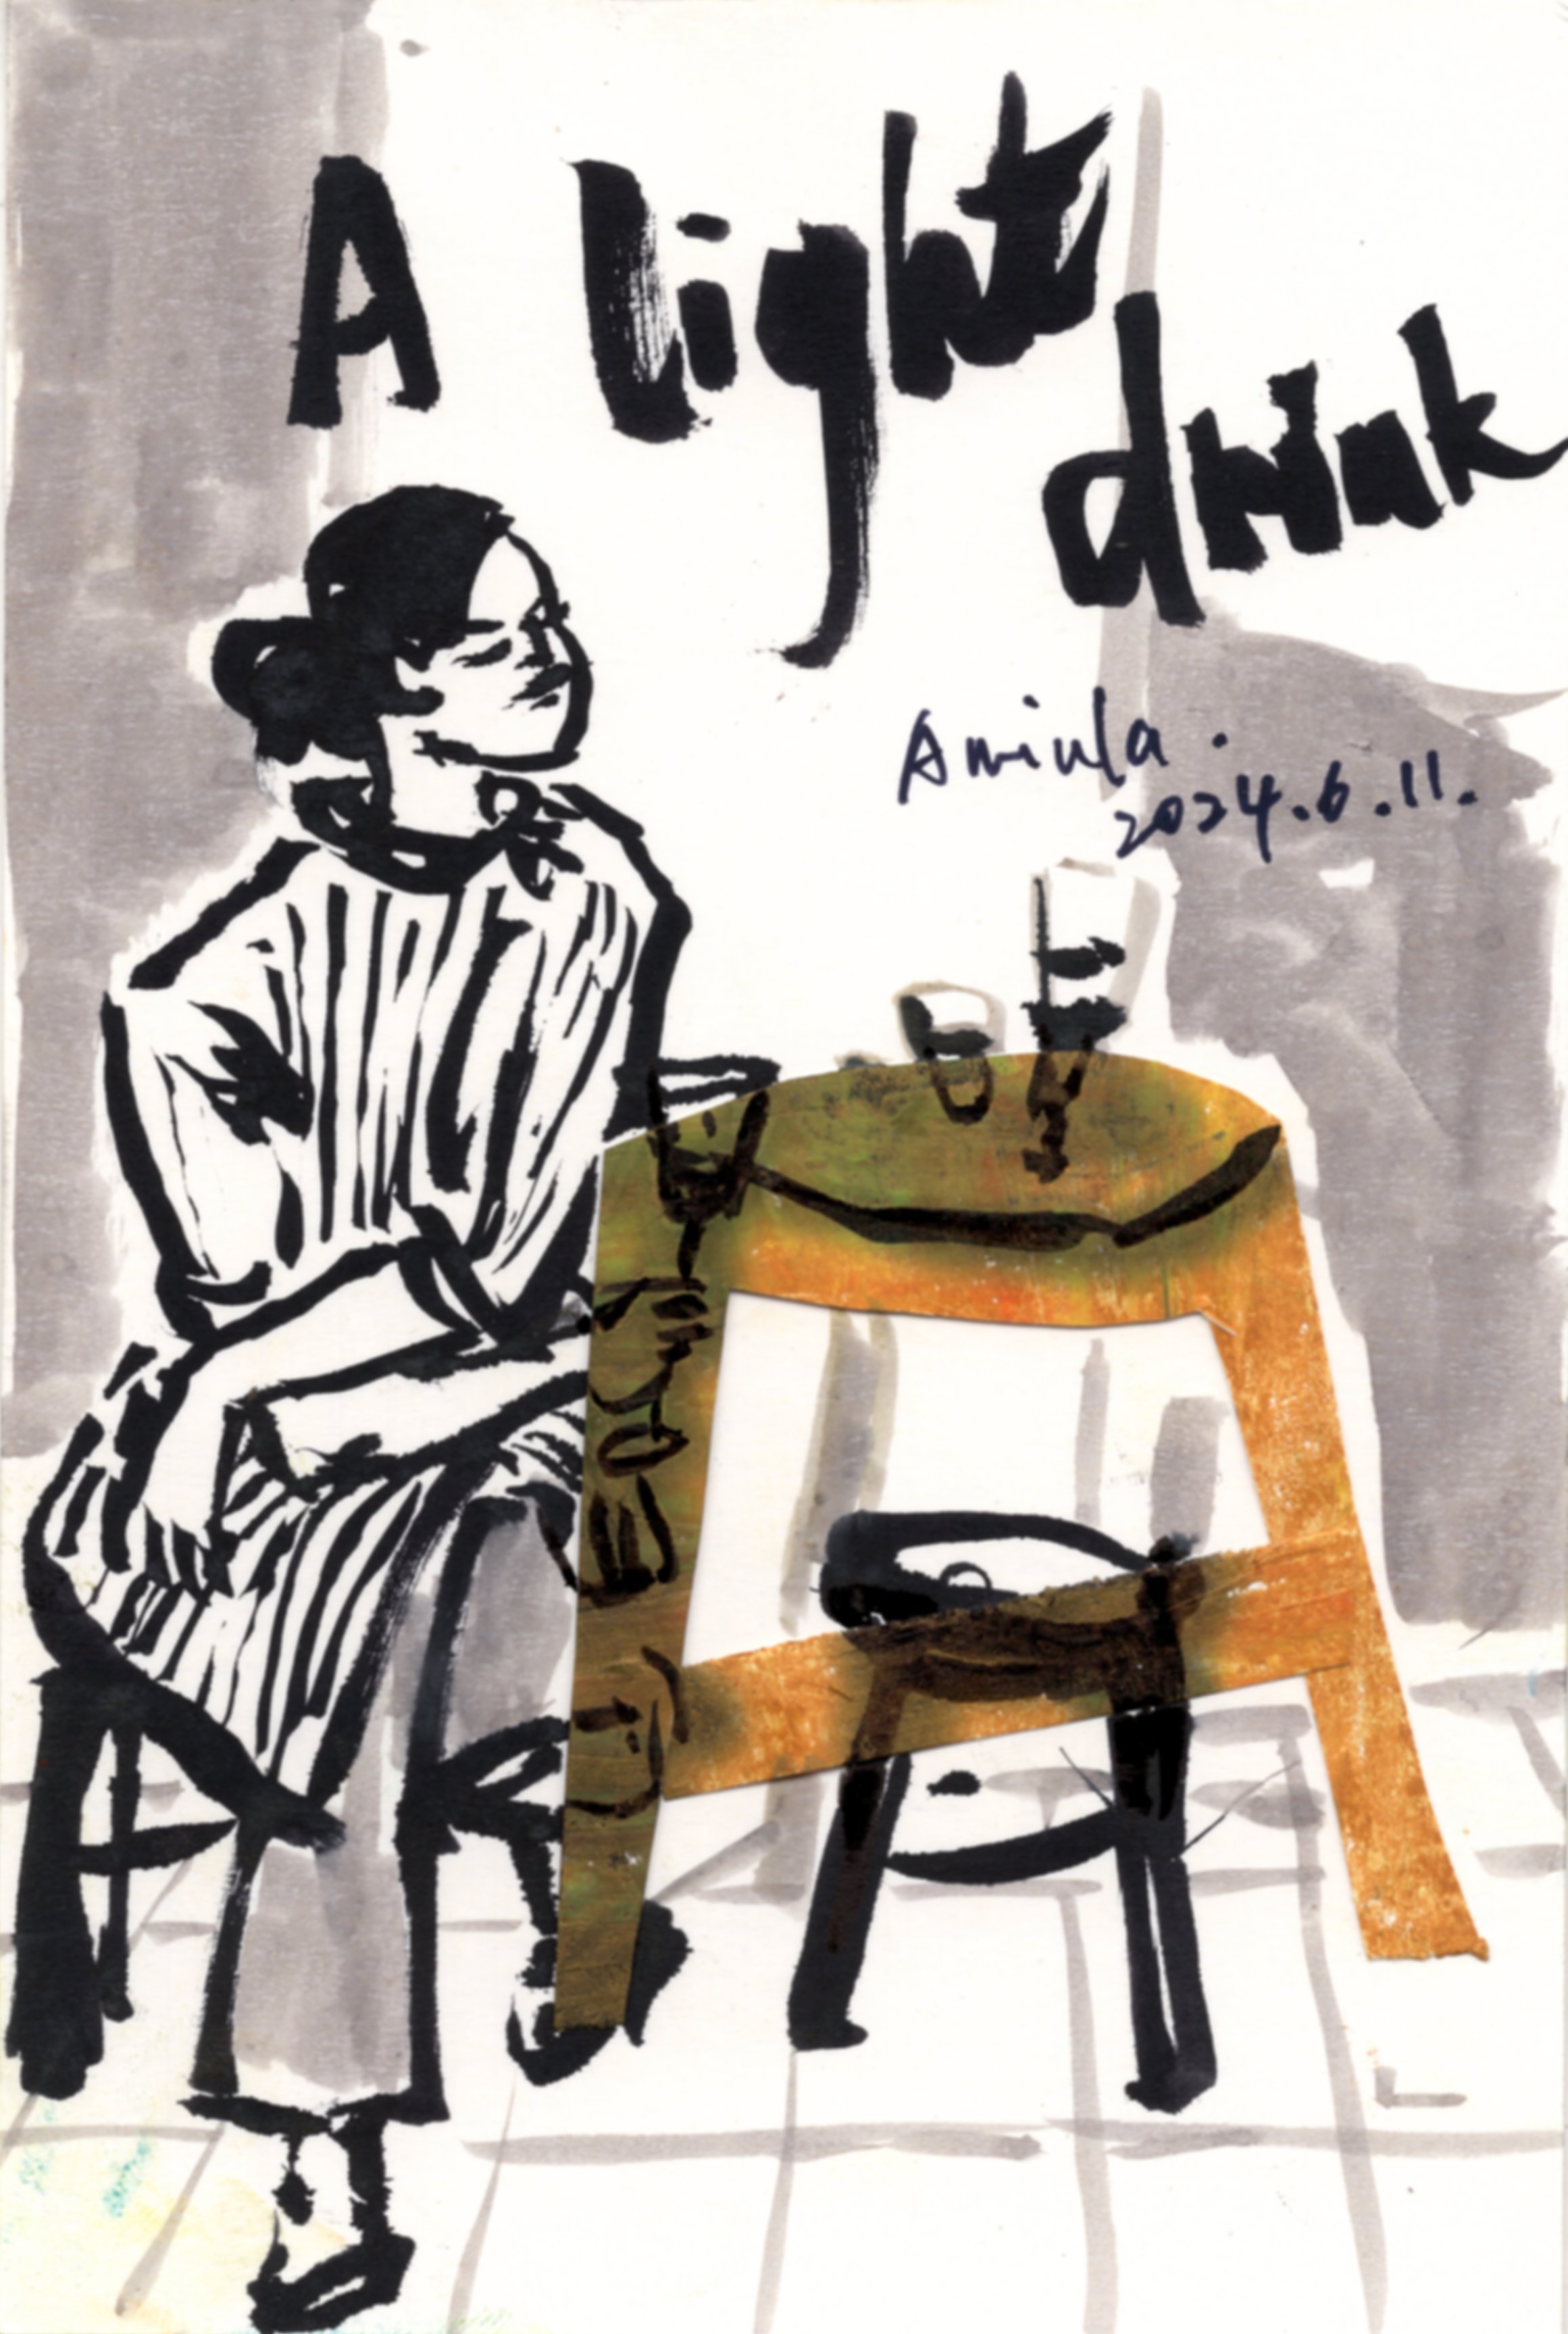 A light
drink
Aminla.
2024.6.11.